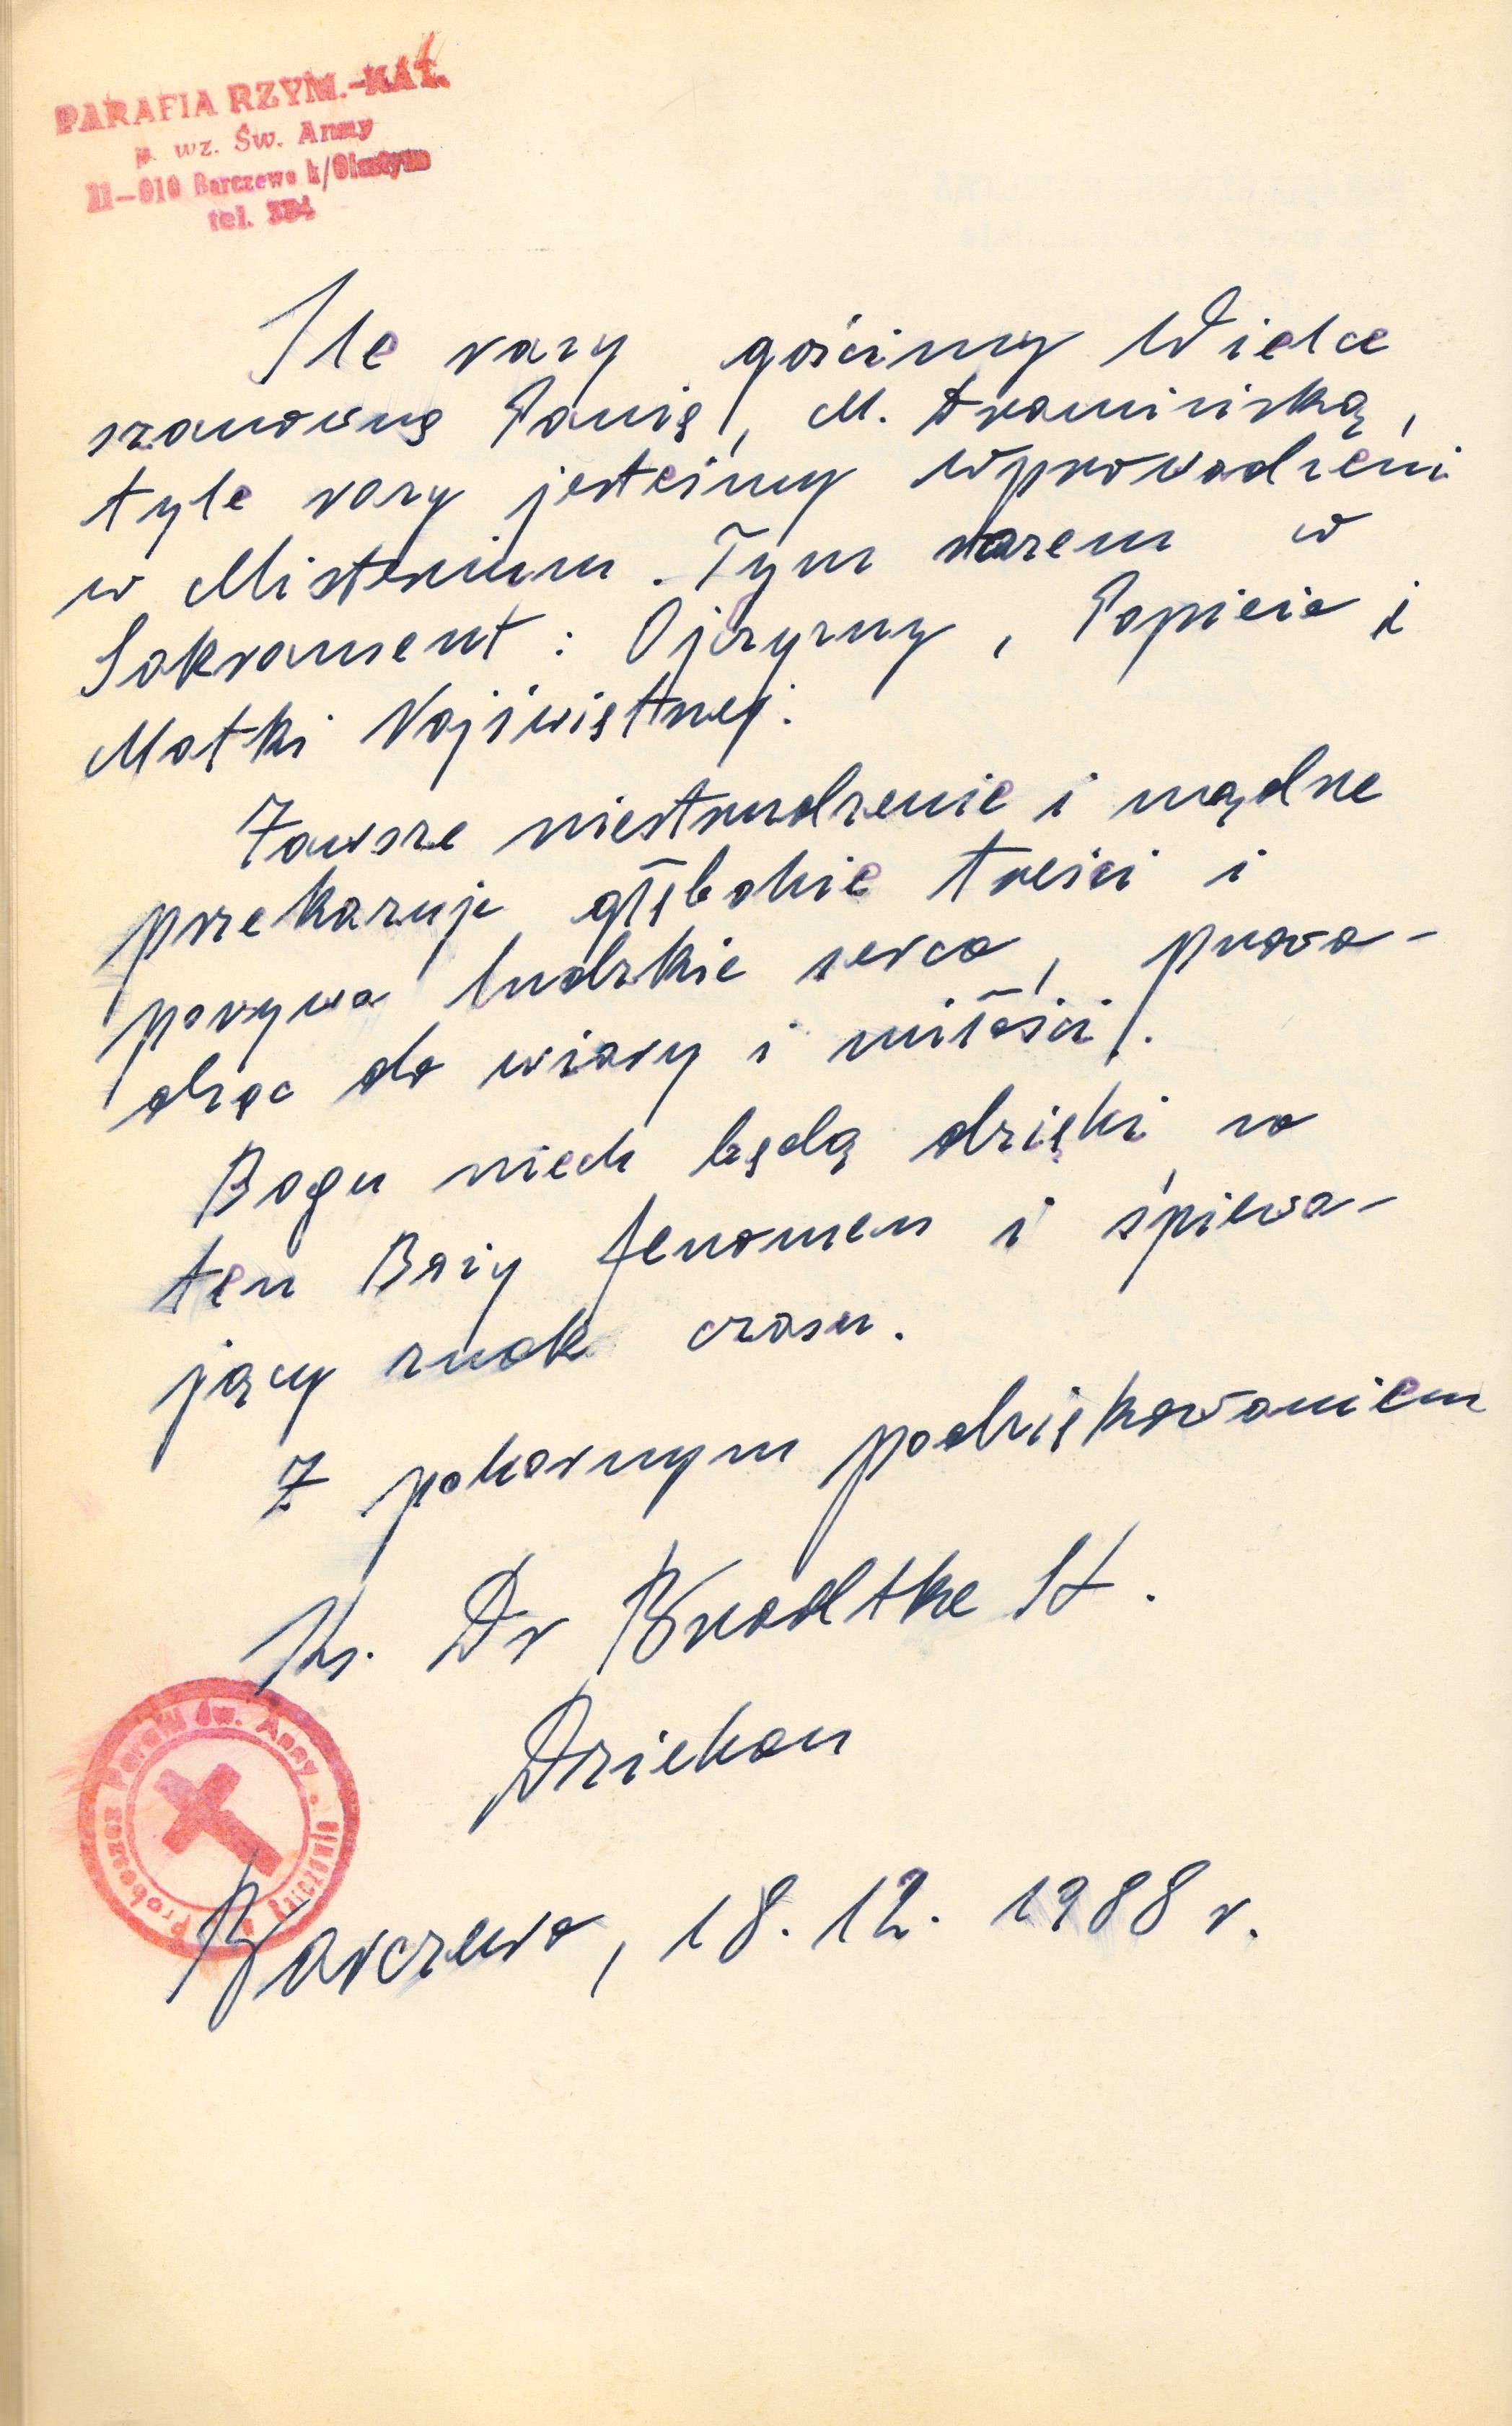 PARAFIA RZYM.-KAT.
p. wz. Św. Anny
11-010 Barczewo k/Olsztyna
tel. 334
Ile razy gościmy Wielce
szanowną Panią, M.
tyle razy jesteśmy wprowadzeni
w Misterium. Tym razem w
Sakrament: Ojczyzny, Papieża i
Matki Najświętszej.
Zawsze niestrudzenie i mądrze
przekazuje głębokie treści i
porywa ludzkie serca, prowa-
dząc do wiary i miłości.
Bogu niech będą dzięki za
ten Boży fenomen i śpiewa-
jący znak czasu.
Z pokornym podziękowaniem
Ks. Dr Bradtke St.
Dziekan
Proboszcz Parafii św. Anny
Barczewo, 18.12.1988 r.